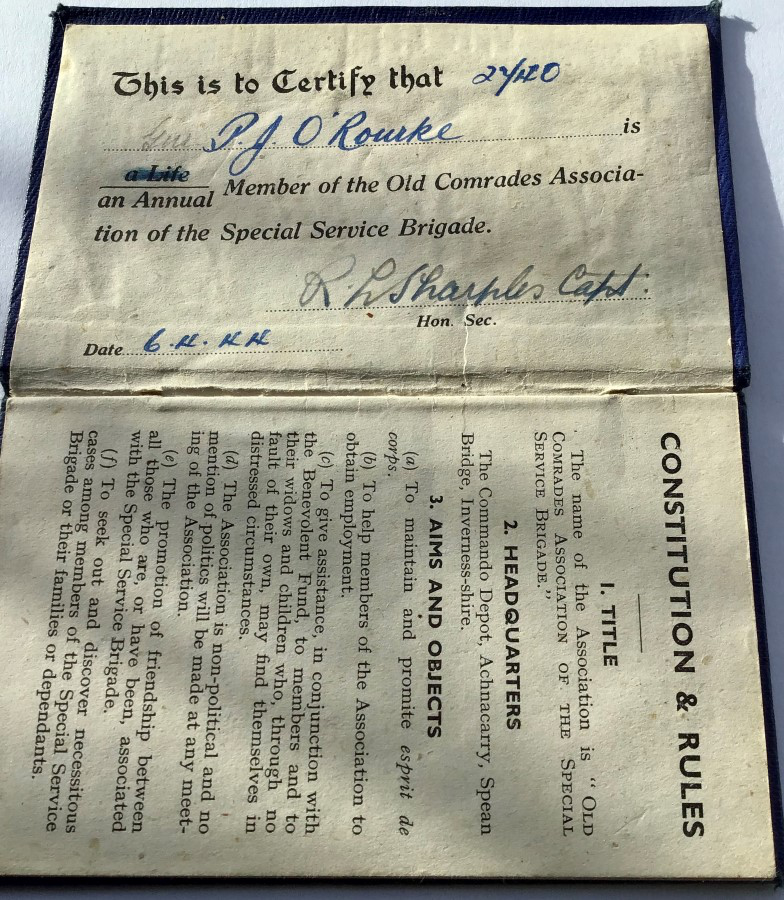 This is to Certify that
P. J. O'Rourke is
a Life
an Annual Member of the Old Comrades Associa-
tion of the Special Service Brigade.
R L Sharples Capt.
Hon. Sec.
Date 6.4.44
CONSTITUTION & RULES
1. TITLE
The name of the Association is “ OLD
COMRADES ASSOCIATION OF THE SPECIAL
SERVICE BRIGADE.”
2. HEADQUARTERS
The Commando Depot, Achnacarry, Spean
Bridge, Inverness-shire.
3. AIMS AND OBJECTS
(a) To maintain and promite esprit de
corps.
(b) To help members of the Association to
obtain employment.
(c) To give assistance, in conjunction with
the Benevolent Fund, to members and to
their widows and children who, through no
fault of their own, may find themselves in
distressed circumstances.
(d) The Association is non-political and no
mention of politics will be made at any meet-
ing of the Association.
(e) The promotion of friendship between
all those who are, or have been, associated
with the Special Service Brigade.
(f) To seek out and discover necessitous
cases among members of the Special Service
Brigade or their families or dependants.